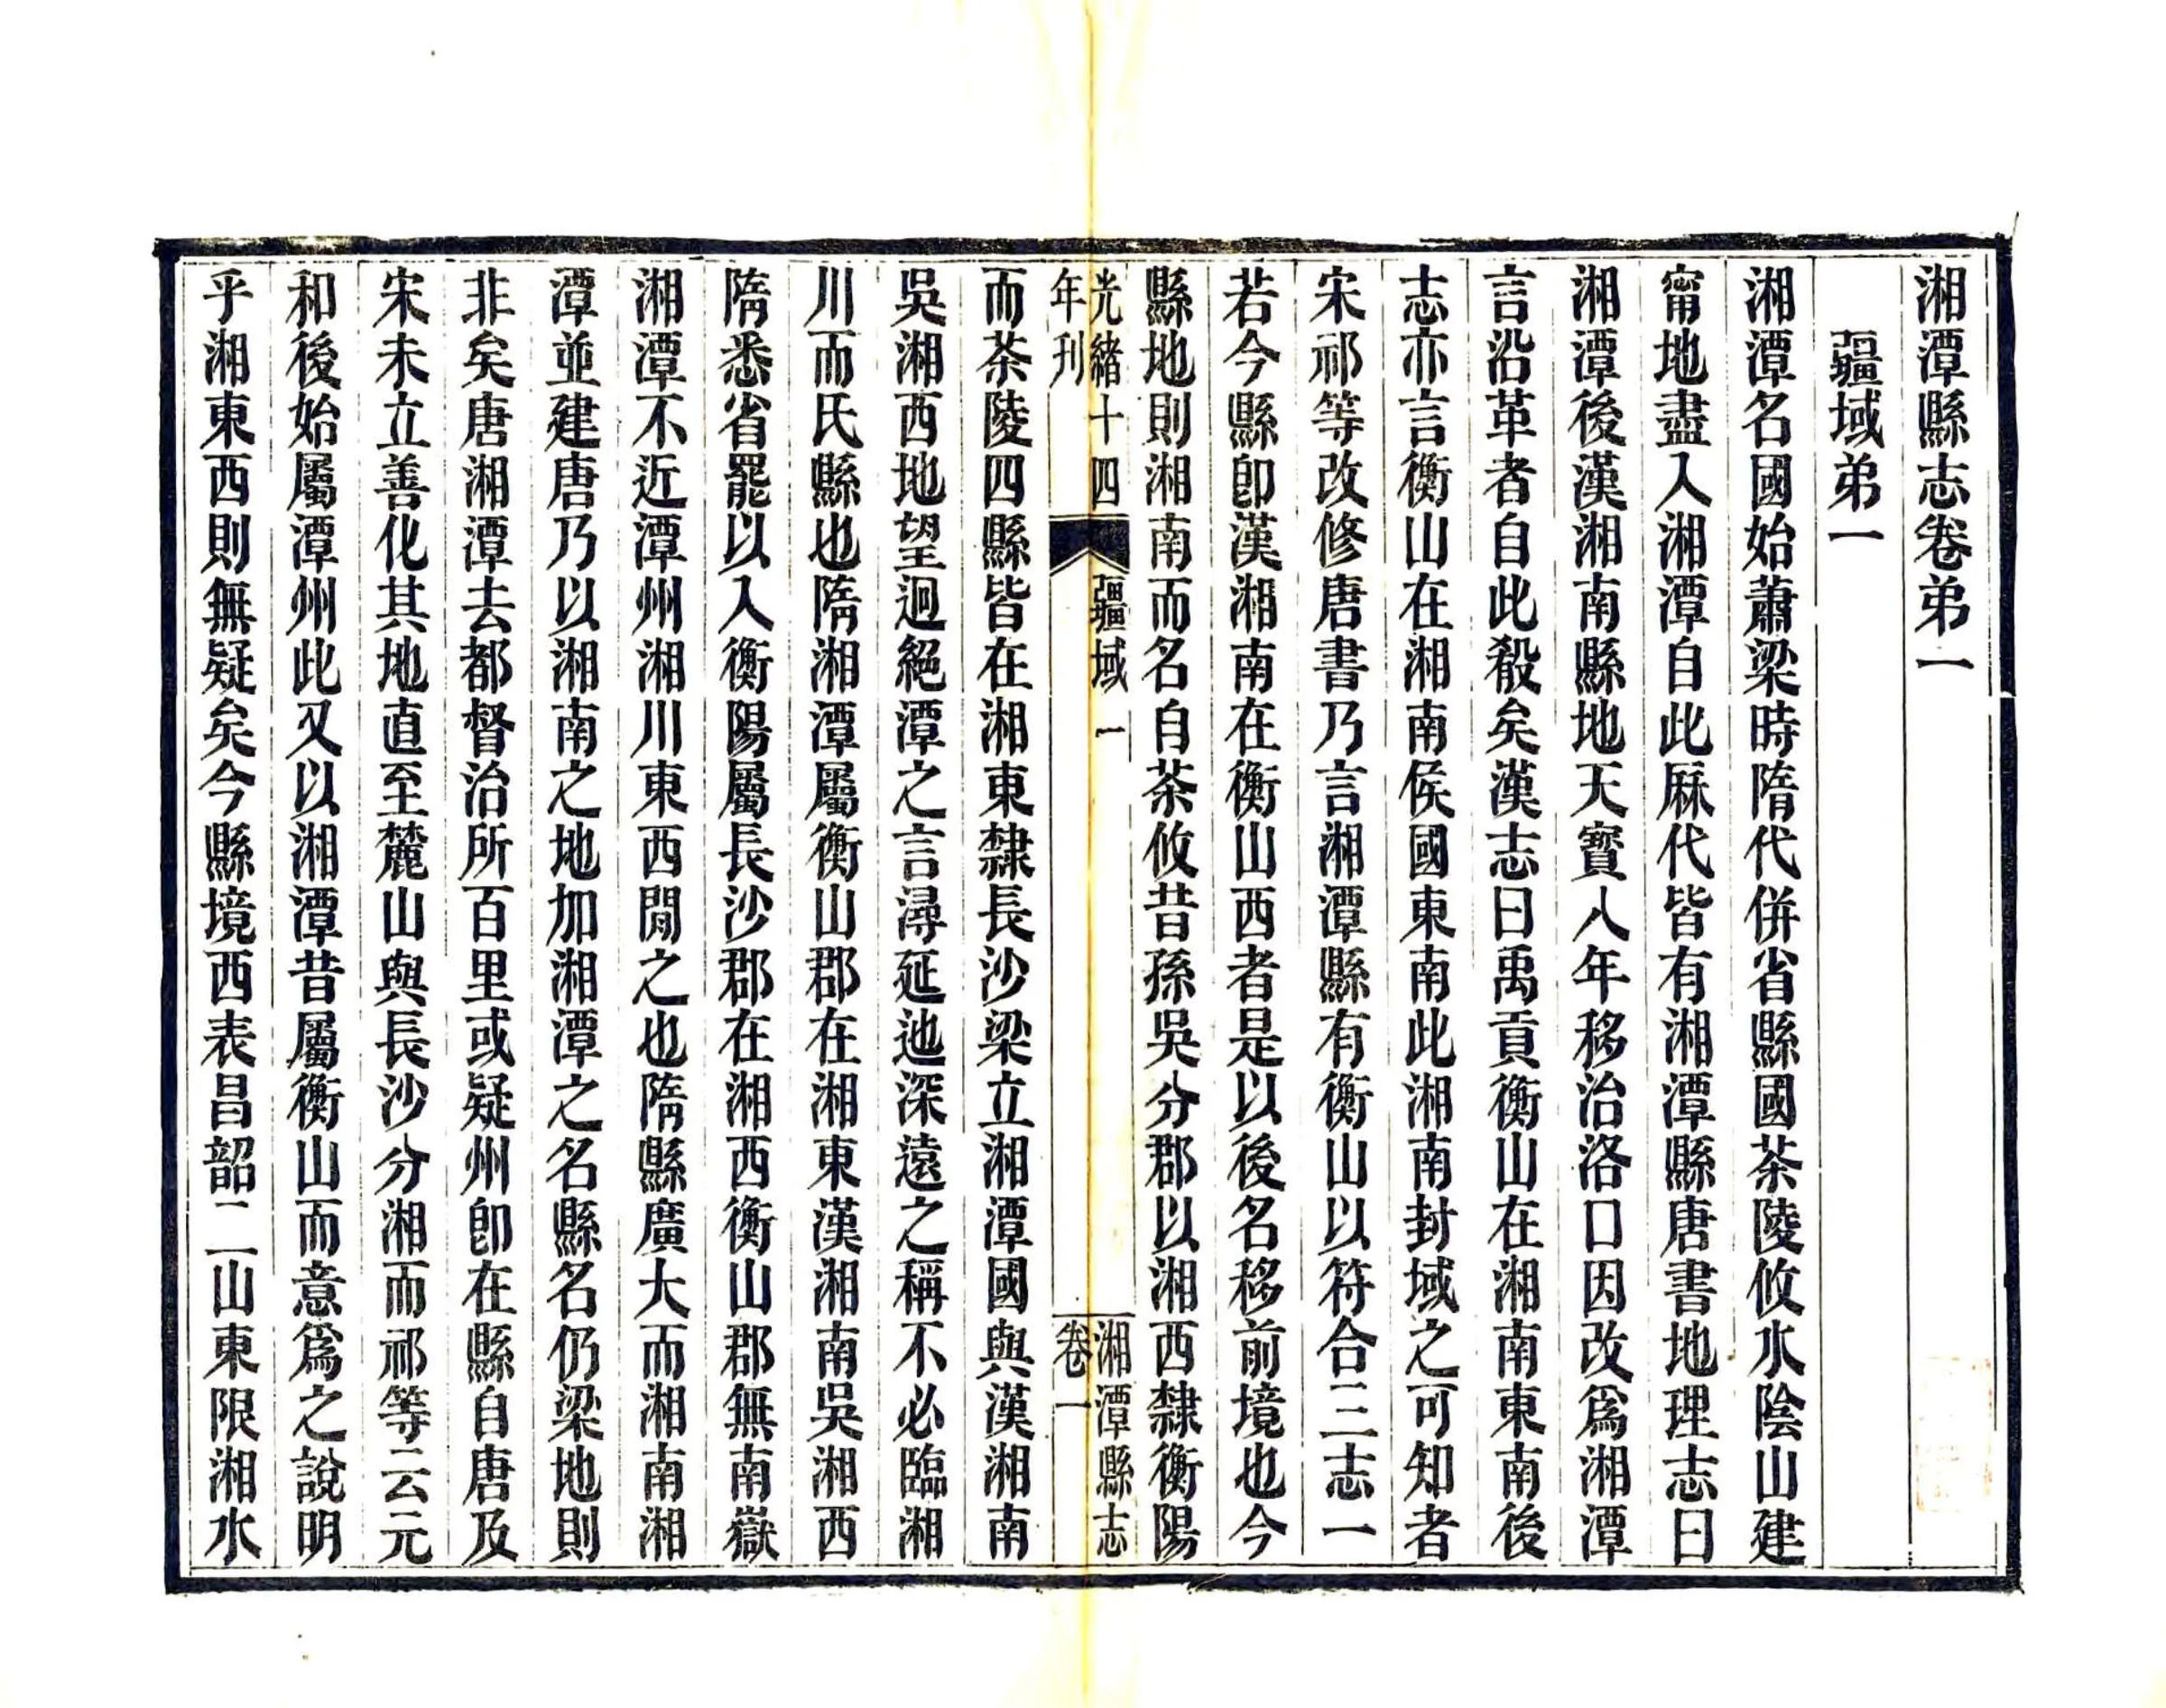 湘潭縣志卷弟一
疆域弟一
湘潭名國始蕭梁時隋代併省縣國茶陵攸水陰山建
甯地盡入湘潭自此厤代皆有湘潭縣唐書地理志曰
湘潭後漢湘南縣地天寶八年移治洛口因改爲湘潭
言沿革者自此殽矣漢志曰禹貢衡山在湘南東南後
志亦言衡山在湘南侯國東南此湘南封域之可知者
宋祁等改修唐書乃言湘潭縣有衡山以符合三志一
若今縣卽漢湘南在衡山西者是以後名移前境也今
縣地則湘南而名自茶攸昔孫吳分郡以湘西隸衡陽
光緒十四
年刊
疆域
一
湘潭縣志
卷一
而茶陵四縣皆在湘東隸長沙梁立湘潭國與漢湘南
吳湘西地望迥絕潭之言潯延迆深遠之稱不必臨湘
川而氏縣也隋湘潭屬衡山郡在湘東漢湘南吳湘西
隋悉省罷以入衡陽屬長沙郡在湘西衡山郡無南嶽
湘潭不近潭州湘川東西閒之也隋縣廣大而湘南湘
潭並建唐乃以湘南之地加湘潭之名縣名仍梁地則
非矣唐湘潭去都督治所百里或疑州卽在縣自唐及
宋未立善化其地直至麓山與長沙分湘而祁等云元
和後始屬潭州此又以湘潭昔屬衡山而意爲之說明
乎湘東西則無疑矣今縣境西表昌韶二山東限湘水